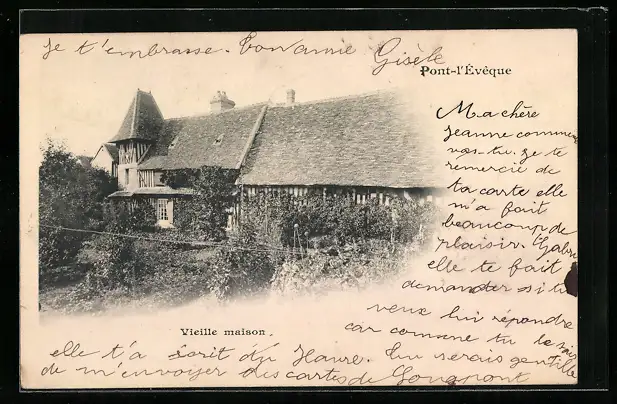 je t'embrasse. Ton amie Gisèle
Pont-l'Évêque
Ma chère
Jeanne comment
vas-tu. je te
remercie de
ta carte elle
m'a fait
beaucoup de
plaisir.
elle te fait
demander si tu
veux lui répondre
car comme tu le sais
Vieille maison.
elle t'a écrit du Havre. tu serais gentille
de m'envoyer des cartes de